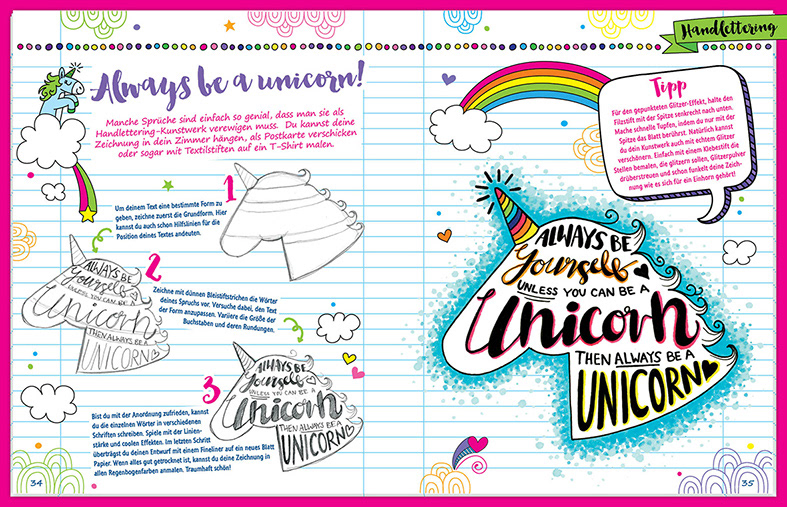 Handlettering
Always be a unicorn!
Manche Sprüche sind einfach so genial, dass man sie als
Handlettering-Kunstwerk verewigen muss. Du kannst deine
Zeichnung in dein Zimmer hängen, als Postkarte verschicken
oder sogar mit Textilstiften auf ein T-Shirt malen.
1
Um deinem Text eine bestimmte Form zu
geben, zeichne zuerst die Grundform. Hier
kannst du auch schon Hilfslinien für die
Position deines Textes andeuten.
2
Zeichne mit dünnen Bleistiftstrichen die Wörter
deines Spruchs vor. Versuche dabei, den Text
der Form anzupassen. Variiere die Größe der
Buchstaben und deren Rundungen.
ALWAYS BE
Yourself
UNLESS YOU CAN BE A
Unicorn
THEN ALWAYS BE A
UNICORN
3
Bist du mit der Anordnung zufrieden, kannst
du die einzelnen Wörter in verschiedenen
Schriften schreiben. Spiele mit der Linien-
stärke und coolen Effekten. Im letzten Schritt
überträgst du deinen Entwurf mit einem Fineliner auf ein neues Blatt
Papier. Wenn alles gut getrocknet ist, kannst du deine Zeichnung in
allen Regenbogenfarben anmalen. Traumhaft schön!
ALWAYS BE
Yourself
UNLESS YOU CAN BE A
Unicorn
THEN ALWAYS BE A
UNICORN
34
Tipp
Für den gepunkteten Glitzer-Effekt, halte den
Filzstift mit der Spitze senkrecht nach unten.
Mache schnelle Tupfen, indem du nur mit der
Spitze das Blatt berührst. Natürlich kannst
du dein Kunstwerk auch mit echtem Glitzer
verschönern. Einfach mit einem Klebestift die
Stellen bemalen, die glitzern sollen, Glitzerpulver
drüberstreuen und schon funkelt deine Zeich-
nung wie es sich für ein Einhorn gehört!
ALWAYS BE
Yourself
UNLESS YOU CAN BE A
Unicorn
THEN ALWAYS BE A
UNICORN
35